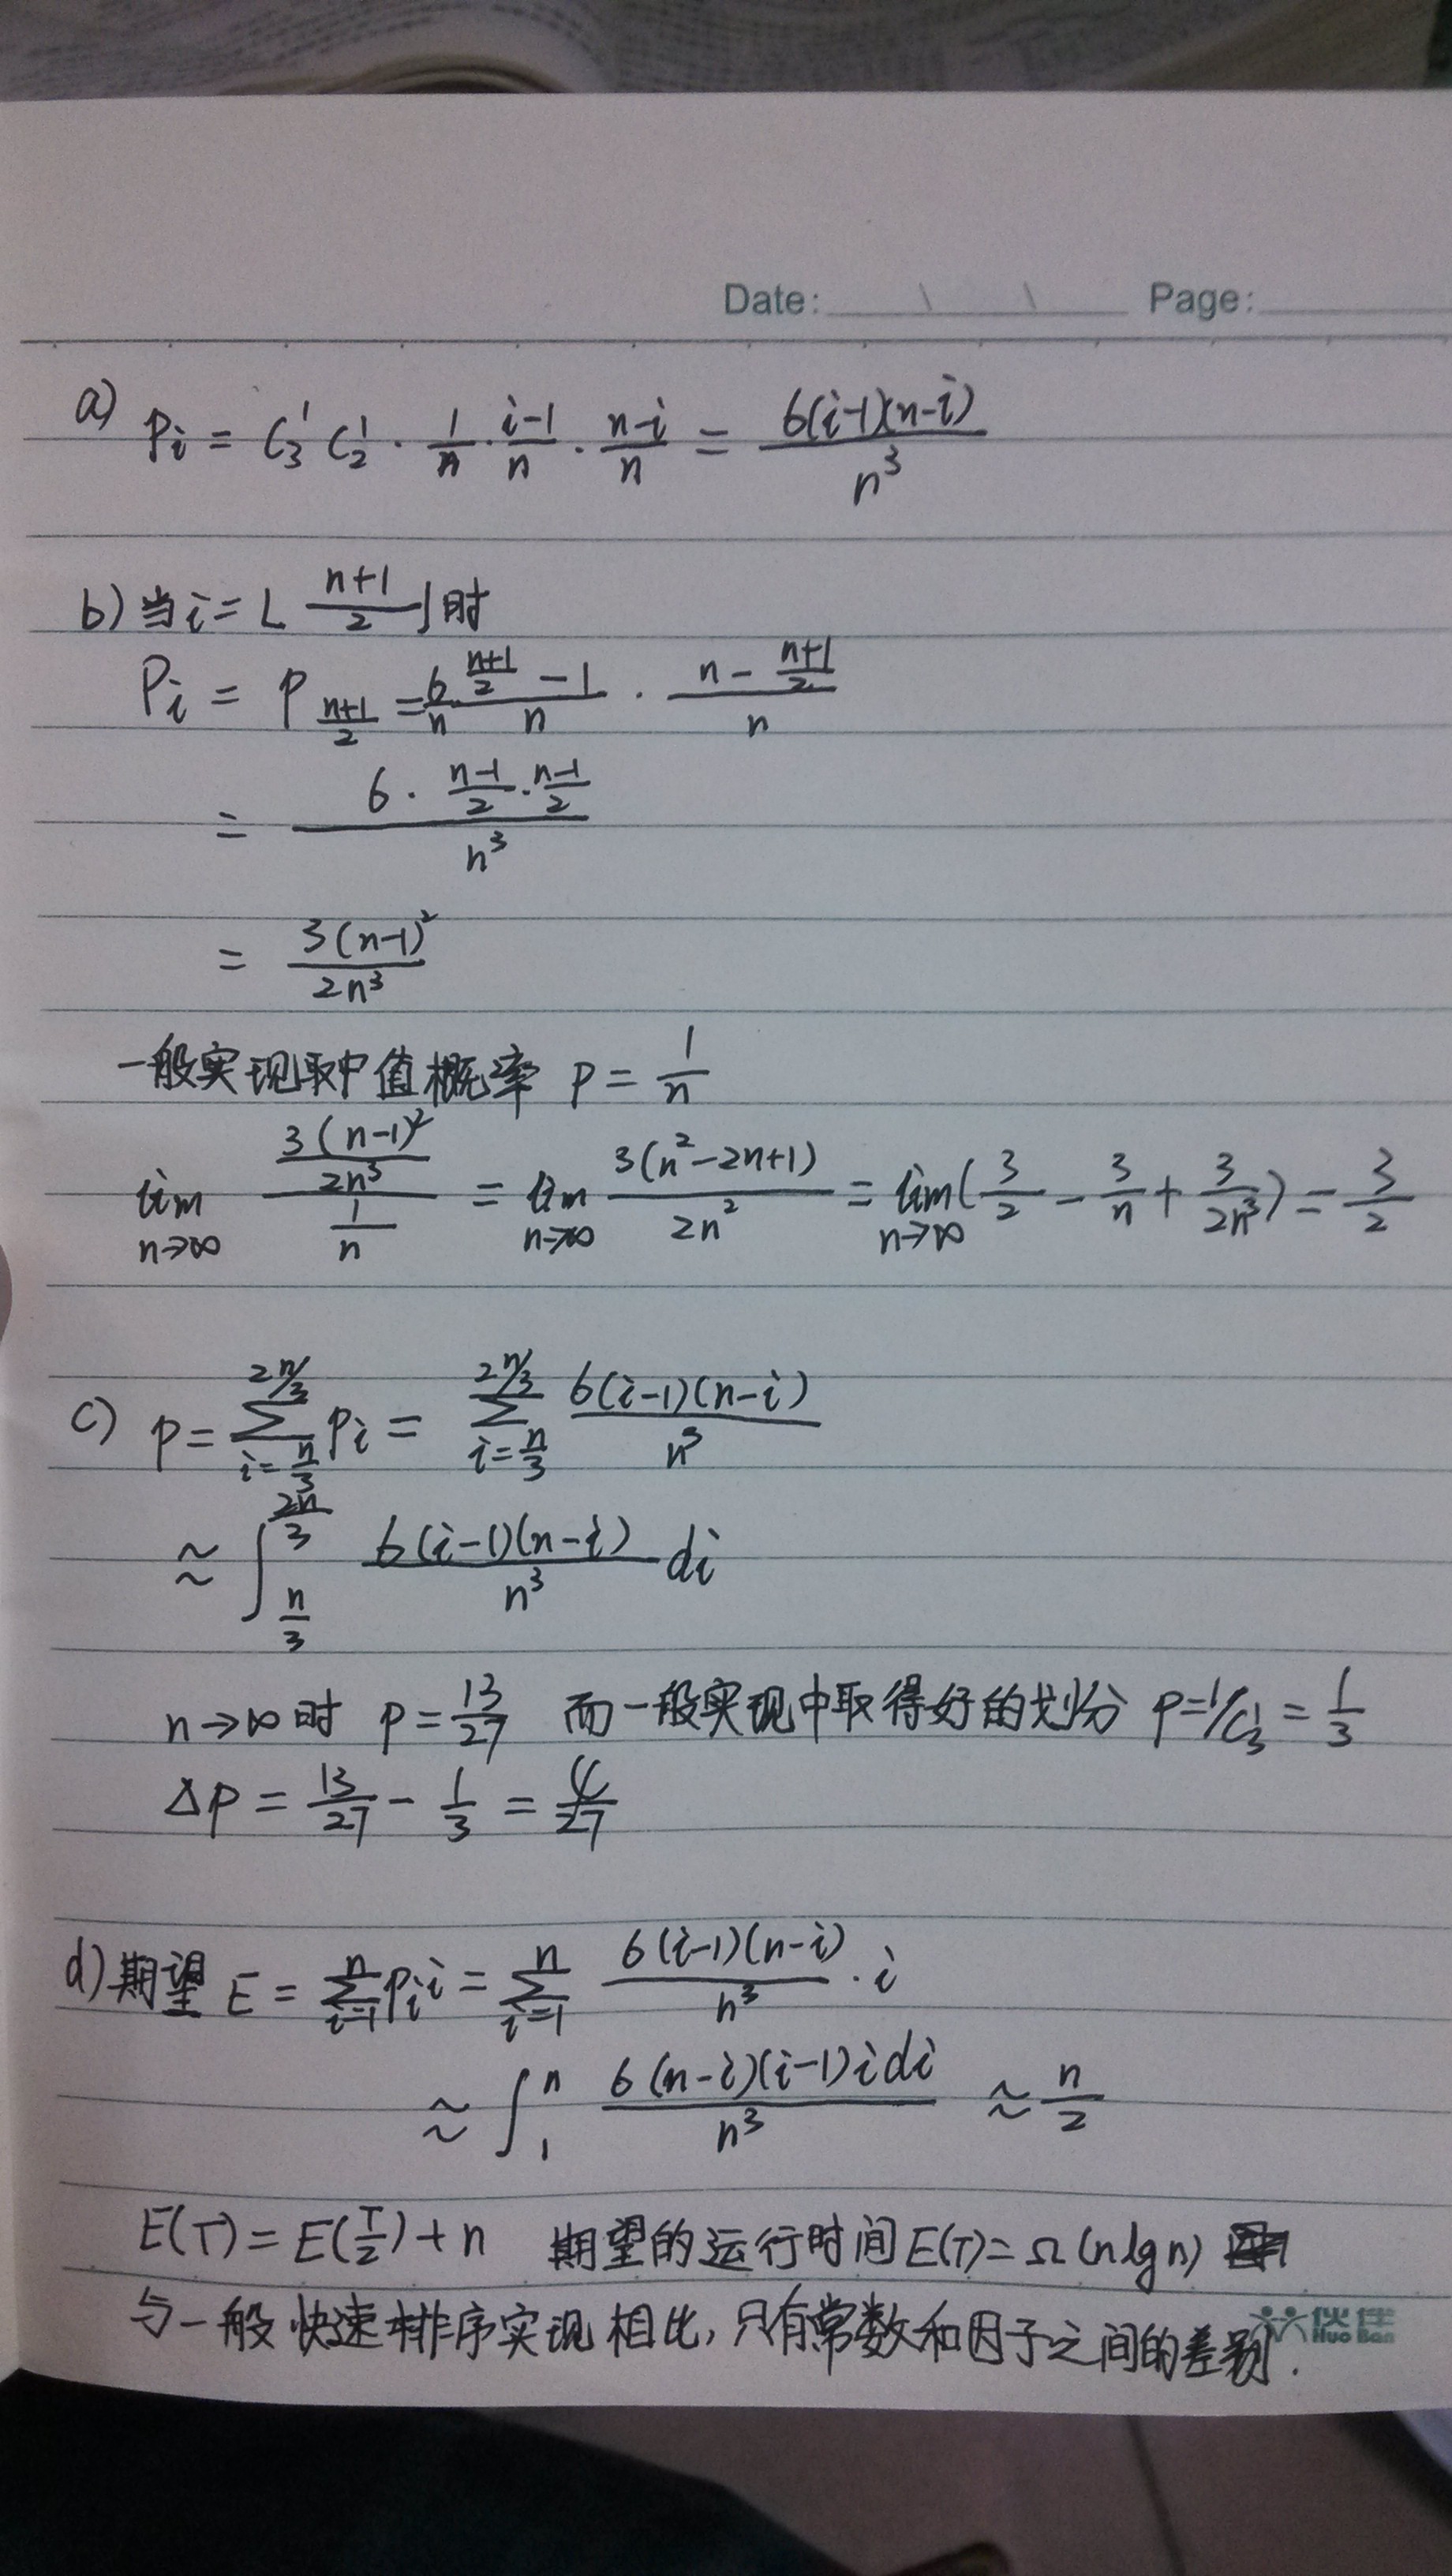 Date: Page:
a) Pi = C₃¹ C₂¹ · 1/n · (i-1)/n · (n-i)/n = 6(i-1)(n-i)/n³
b) 当 i = ⌊(n+1)/2⌋ 时
Pi = P_{(n+1)/2} = 6/n · ((n+1)/2 - 1)/n · (n - (n+1)/2)/n
= (6 · (n-1)/2 · (n-1)/2)/n³
= 3(n-1)²/2n³
一般实现取中值概率 P = 1/n
lim_{n→∞} (3(n-1)²/2n³)/(1/n) = lim_{n→∞} 3(n²-2n+1)/2n² = lim_{n→∞} (3/2 - 3/n + 3/2n³) = 3/2
c) P = Σ_{i=n/3}^{2n/3} Pi = Σ_{i=n/3}^{2n/3} 6(i-1)(n-i)/n³
≈ ∫_{n/3}^{2n/3} 6(i-1)(n-i)/n³ di
n→∞时 P = 13/27 而一般实现中取得好的划分 P = 1/C₃¹ = 1/3
ΔP = 13/27 - 1/3 = 4/27
d) 期望 E = Σ_{i=1}^{n} Pi i = Σ_{i=1}^{n} 6(i-1)(n-i)/n³ · i
≈ ∫_1^n 6(n-i)(i-1)i di/n³ ≈ n/2
E(T) = E(T/2) + n 期望的运行时间 E(T) = Ω(n lg n)
与一般快速排序实现相比, 只有常数和因子之间的差别.
伙伴
Huo Ban